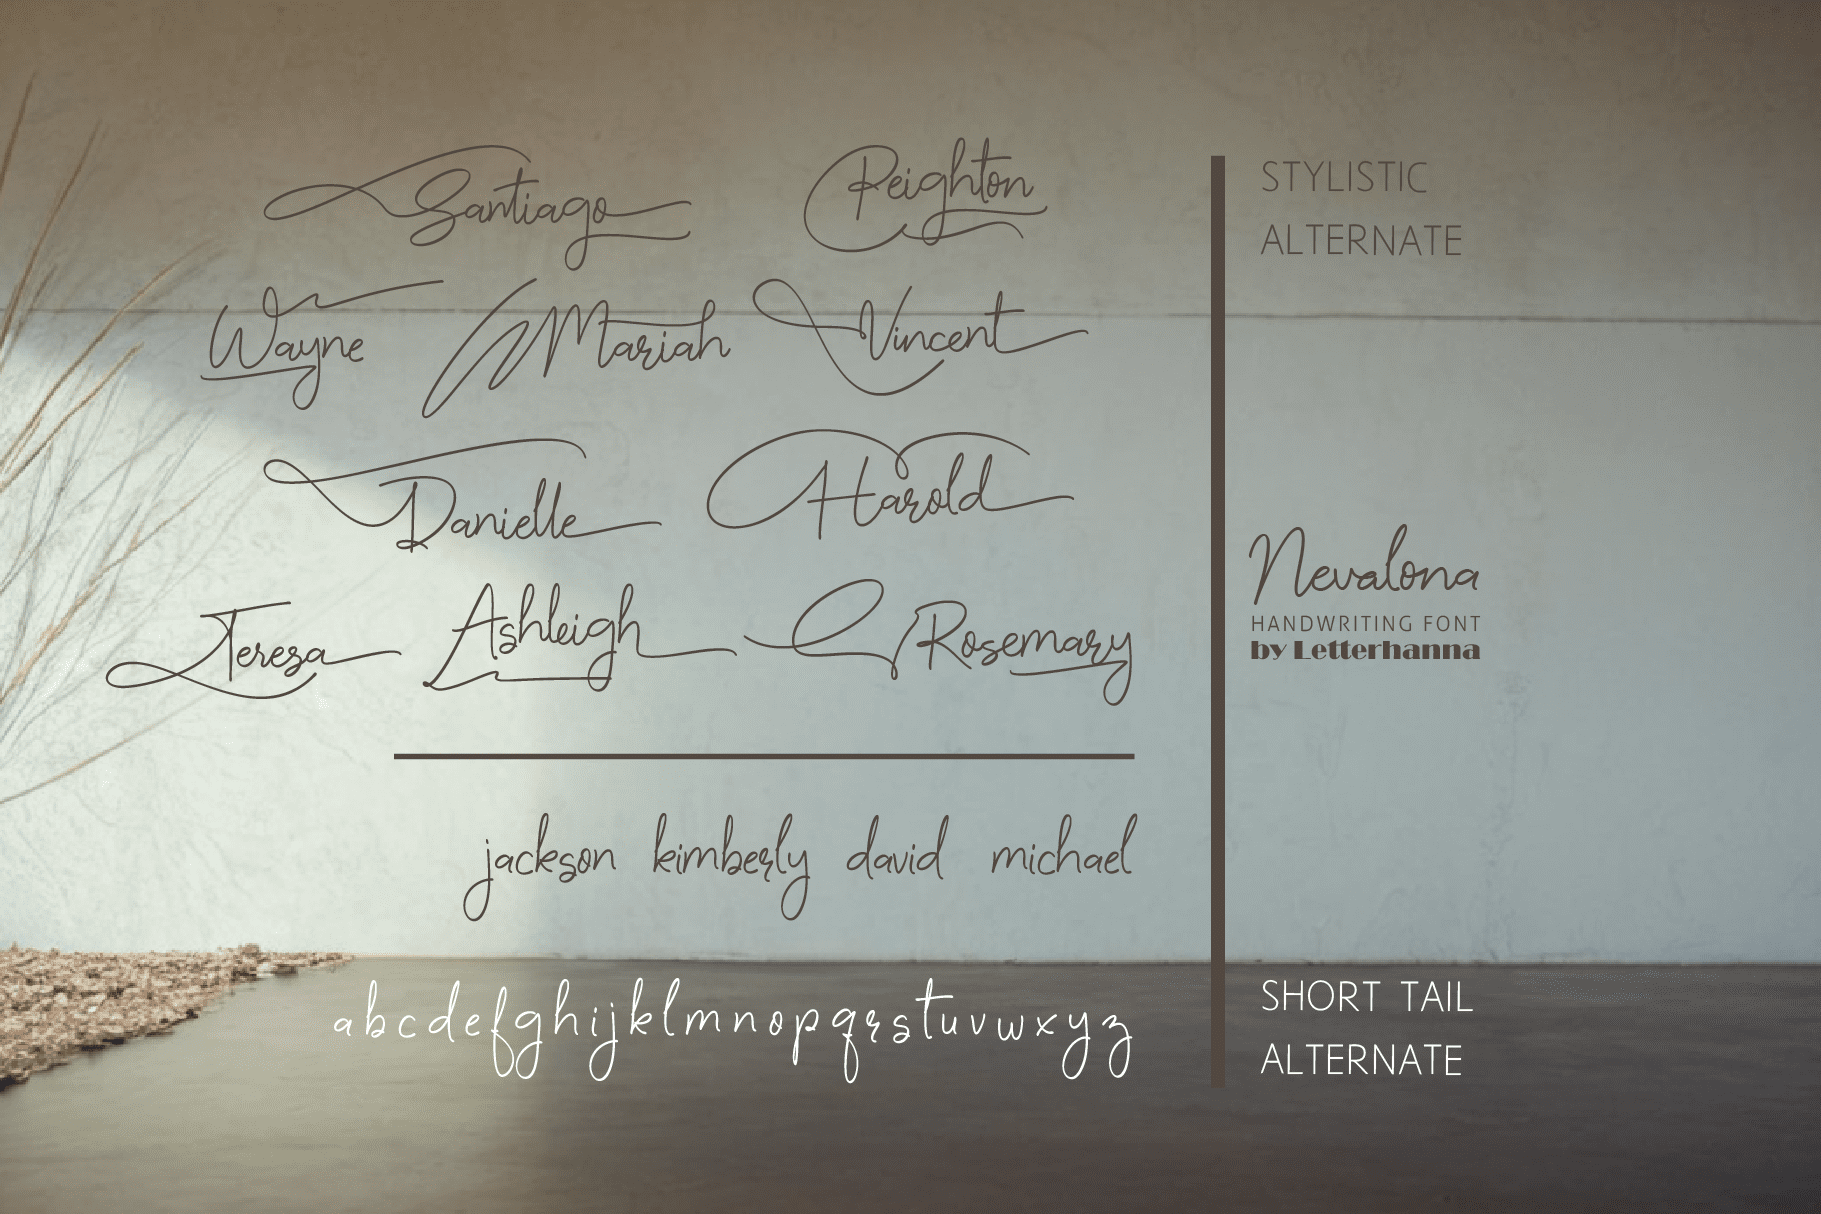 Santiago Peighton
Wayne Mariah Vincent
Danielle Harold
Teresa Ashleigh Rosemary
jackson kimberly david michael
a b c d e f g h i j k l m n o p q r s t u v w x y z
STYLISTIC
ALTERNATE
Nevalona
HANDWRITING FONT
by Letterhanna
SHORT TAIL
ALTERNATE